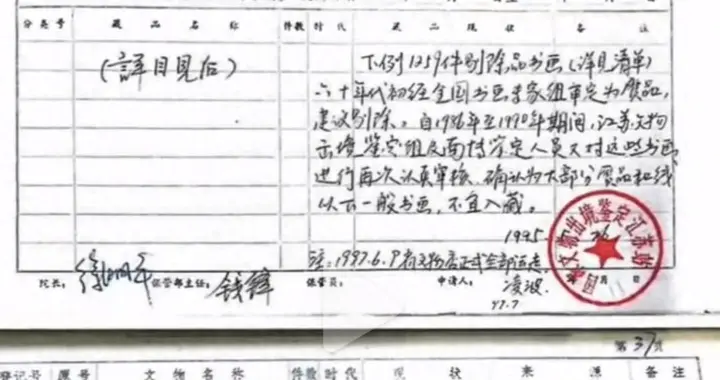 分类号 藏品名称 件数 时代 藏品现状 备注
(詳目見后)
下例1259件剔除品书画(详见清单)
六十年代初经全国书画专家组审定为赝品,
建议剔除。自1986年至1990年期间,江苏文物
出境鉴定组及南博鉴定人员又对这些书画
进行再次认真审核,确认为大部分赝品和线
以下一般书画,不宜入藏。
1995
注:1997.6.9
凌波
97.7
院长: 保管部主任: 钱锋 保管员: 申请人: 月 日
国家文物出境鉴定江苏站
第37页
登记号 原号 文物名称 件数 时代 现状 来源 备注